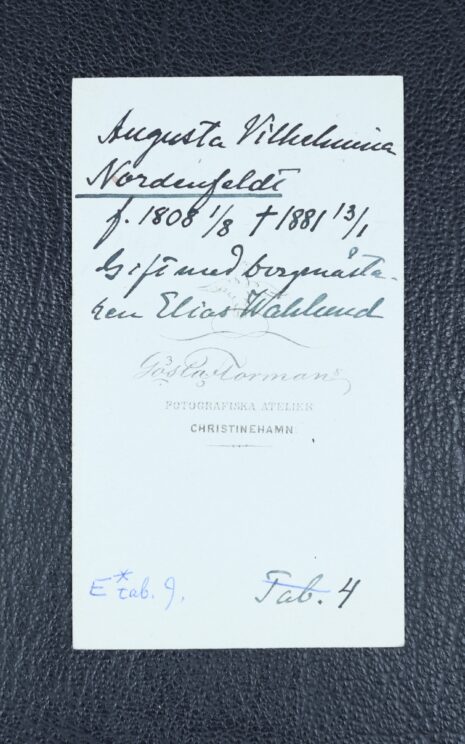 Augusta Vilhelmina
Nordenfeldt
f. 1808 1/8 † 1881 13/1
Gift med borgmästa-
ren Elias Wahlund
Gösta Florman
FOTOGRAFISKA ATELIER
CHRISTINEHAMN.
E* tab. 9. Tab. 4